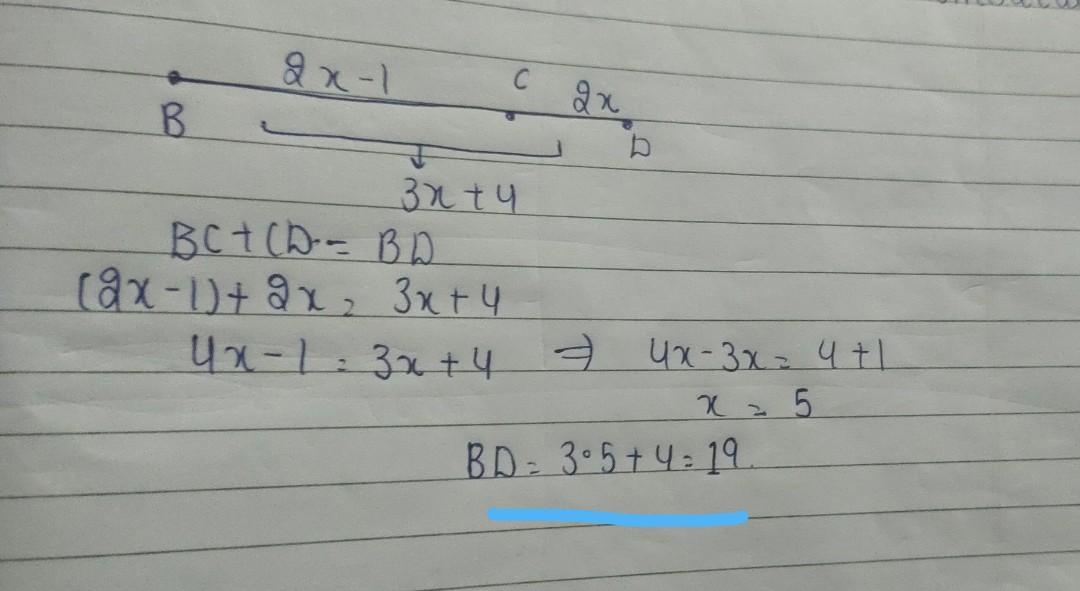 2x-1
C
2x
B
D
3x+4
BC+CD = BD
(2x-1)+ 2x = 3x+4
4x-1 = 3x+4 ⇒ 4x-3x = 4+1
x = 5
BD = 3·5+4 = 19.